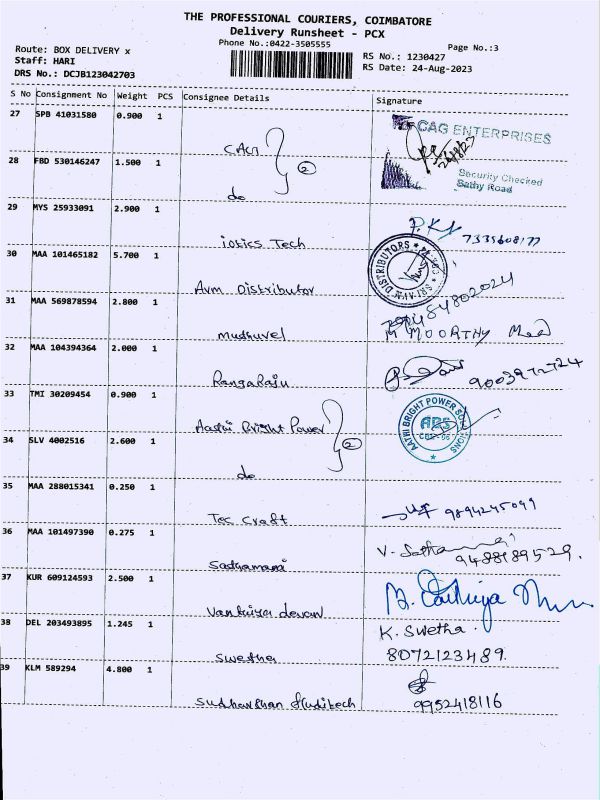 THE PROFESSIONAL COURIERS, COIMBATORE
Delivery Runsheet - PCX
Phone No.:0422-3505555
Page No.:3
Route: BOX DELIVERY x
RS No.: 1230427
Staff: HARI
RS Date: 24-Aug-2023
DRS No.: DCJB123042703
S No Consignment No Weight PCS Consignee Details Signature
27 SPB 41031580 0.900 1
CAG
CAG ENTERPRISES
28 FBD 530146247 1.500 1
2
Security Checked
Sathy Road
do
29 MYS 25933091 2.900 1
iotics Tech
30 MAA 101465182 5.700 1
DISTRIBUTORS
Avm Distributor
31 MAA 569878594 2.800 1
mudhuvel
M MOORTHY
32 MAA 104394364 2.000 1
Rangaraju
33 TMI 30209454 0.900 1
Aathi Bright Power
AATHI BRIGHT POWER SOLUTIONS
ABS
34 SLV 4002516 2.600 1
2
do
35 MAA 288015341 0.250 1
Tec craft 9894245099
36 MAA 101497390 0.275 1
Sathamani
9488189529.
37 KUR 609124593 2.500 1
Vanthiya devan
38 DEL 203493895 1.245 1
K. Swetha.
Swetha
8072123489.
39 KLM 589294 4.800 1
9952418116